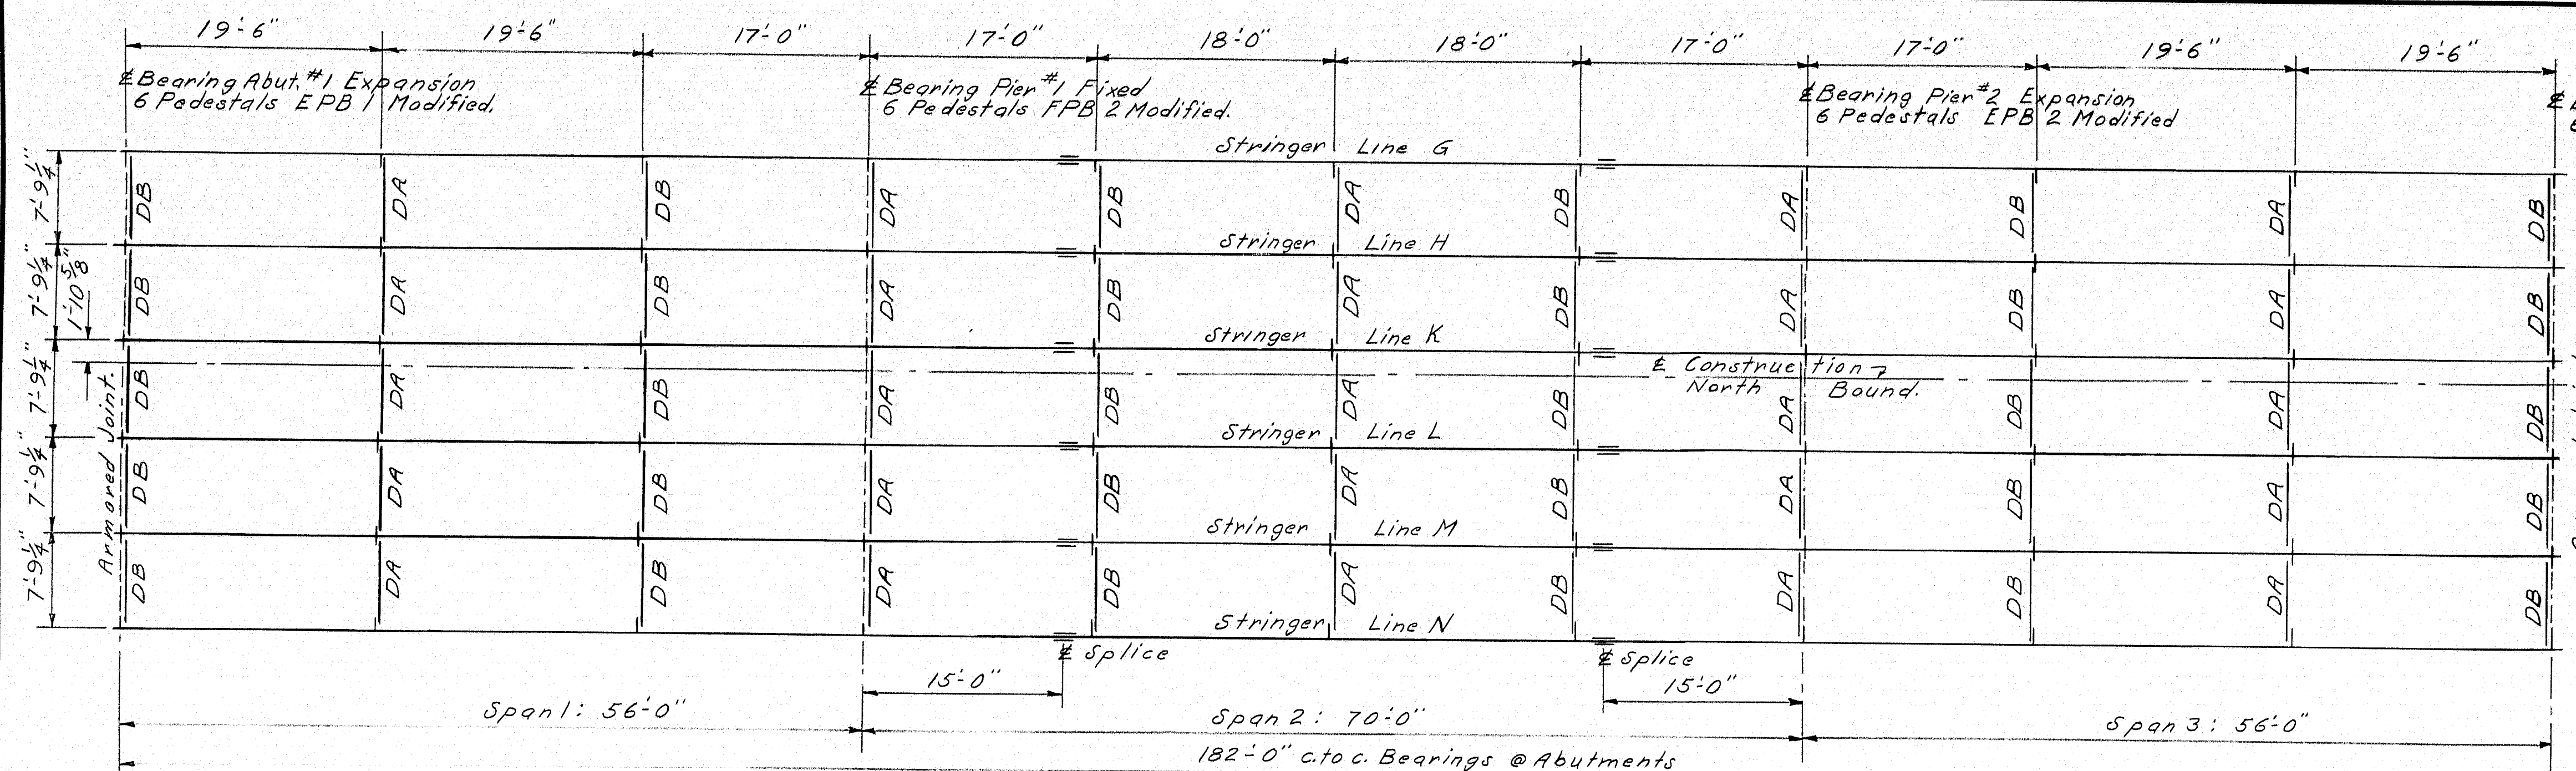 19'-6" 19'-6" 17'-0" 17'-0" 18'-0" 18'-0" 17'-0" 17'-0" 19'-6" 19'-6"
℄ Bearing Abut. #1 Expansion
6 Pedestals EPB 1 Modified.
℄ Bearing Pier #1 Fixed
6 Pedestals FPB 2 Modified.
℄ Bearing Pier #2 Expansion
6 Pedestals EPB 2 Modified
℄
Stringer Line G
7'-9 1/4"
DB DA DB DA DB DA DB DA DB DA DB
Stringer Line H
7'-9 1/4"
1'-10 5/8"
DB DA DB DA DB DA DB DA DB DA DB
Stringer Line K
℄ Construction
North Bound.
7'-9 1/4"
Armored Joint.
DB DA DB DA DB DA DB DA DB DA DB
Stringer Line L
7'-9 1/4"
DB DA DB DA DB DA DB DA DB DA DB
Stringer Line M
7'-9 1/4"
DB DA DB DA DB DA DB DA DB DA DB
Stringer Line N
℄ Splice
℄ Splice
15'-0"
15'-0"
Span 1: 56'-0"
Span 2: 70'-0"
Span 3: 56'-0"
182'-0" c. to c. Bearings @ Abutments